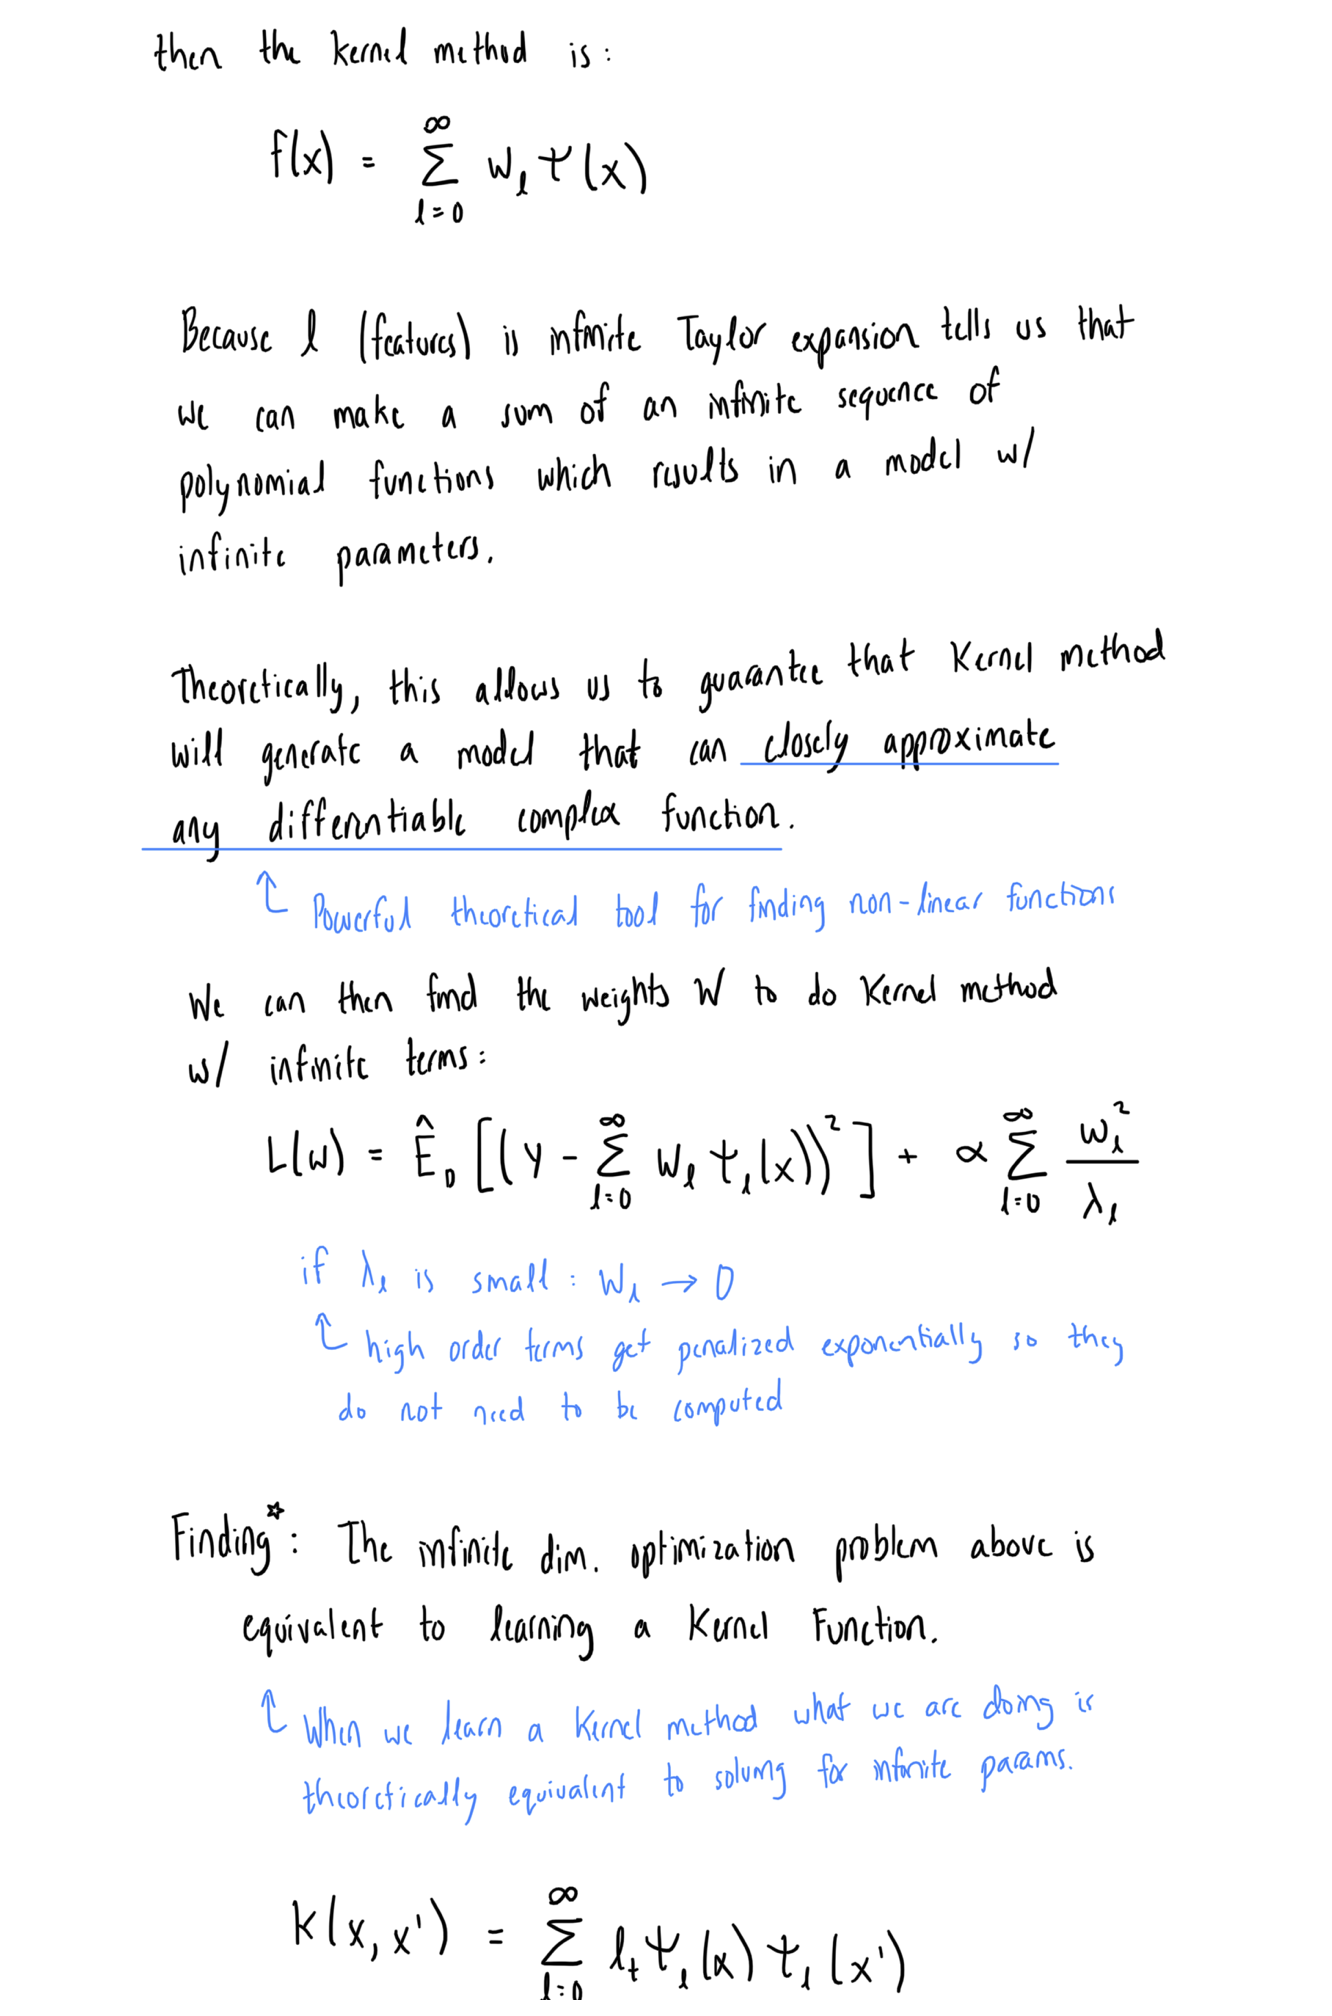 then the kernel method is:
f(x) = ∞ Σ l=0 w_l ψ(x)
Because l (features) is infinite Taylor expansion tells us that
we can make a sum of an infinite sequence of
polynomial functions which results in a model w/
infinite parameters.
Theoretically, this allows us to guarantee that Kernel method
will generate a model that can closely approximate
any differentiable complex function.
↑ Powerful theoretical tool for finding non-linear functions
We can then find the weights W to do Kernel method
w/ infinite terms:
L(w) = Ê_D [(y - ∞ Σ l=0 w_l ψ_l(x))²] + α ∞ Σ l=0 w_l² / λ_l
if λ_l is small: w_l → 0
↑ high order terms get penalized exponentially so they
do not need to be computed
Finding☆: The infinite dim. optimization problem above is
equivalent to learning a Kernel Function.
↑ When we learn a Kernel method what we are doing is
theoretically equivalent to solving for infinite params.
K(x, x') = ∞ Σ l=0 l_t ψ_l(x) ψ_l(x')